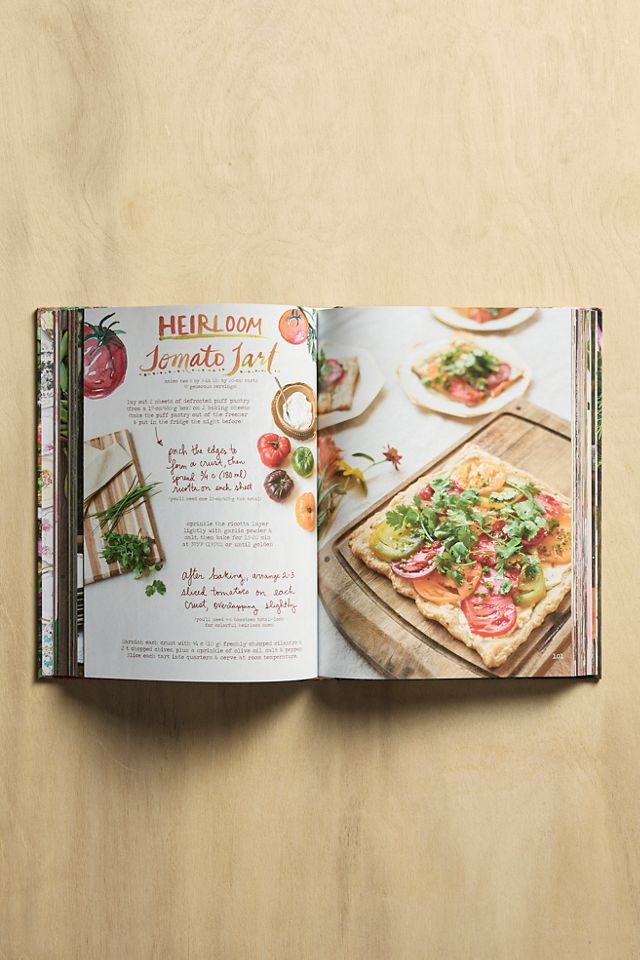 HEIRLOOM
Tomato Tart
lay out 2 sheets of defrosted puff pastry
(from a 17-oz/480-g box) on 2 baking sheets
(take the puff pastry out of the freezer
& put in the fridge the night before)
pinch the edges to
form a crust, then
spread ¾ c (180 ml)
ricotta on each sheet
sprinkle the ricotta layer
lightly with garlic powder &
salt, then bake for 15-20 min
at 375°F (190°C), or until golden
after baking, arrange 2-3
sliced tomatoes on each
crust, overlapping slightly
(you'll need 4-6 tomatoes total—look
for colorful heirloom ones)
Garnish each crust with ¼ c (10 g) freshly chopped cilantro &
2 t chopped chives, plus a sprinkle of olive oil, salt & pepper.
Slice each tart into quarters & serve at room temperature.
101